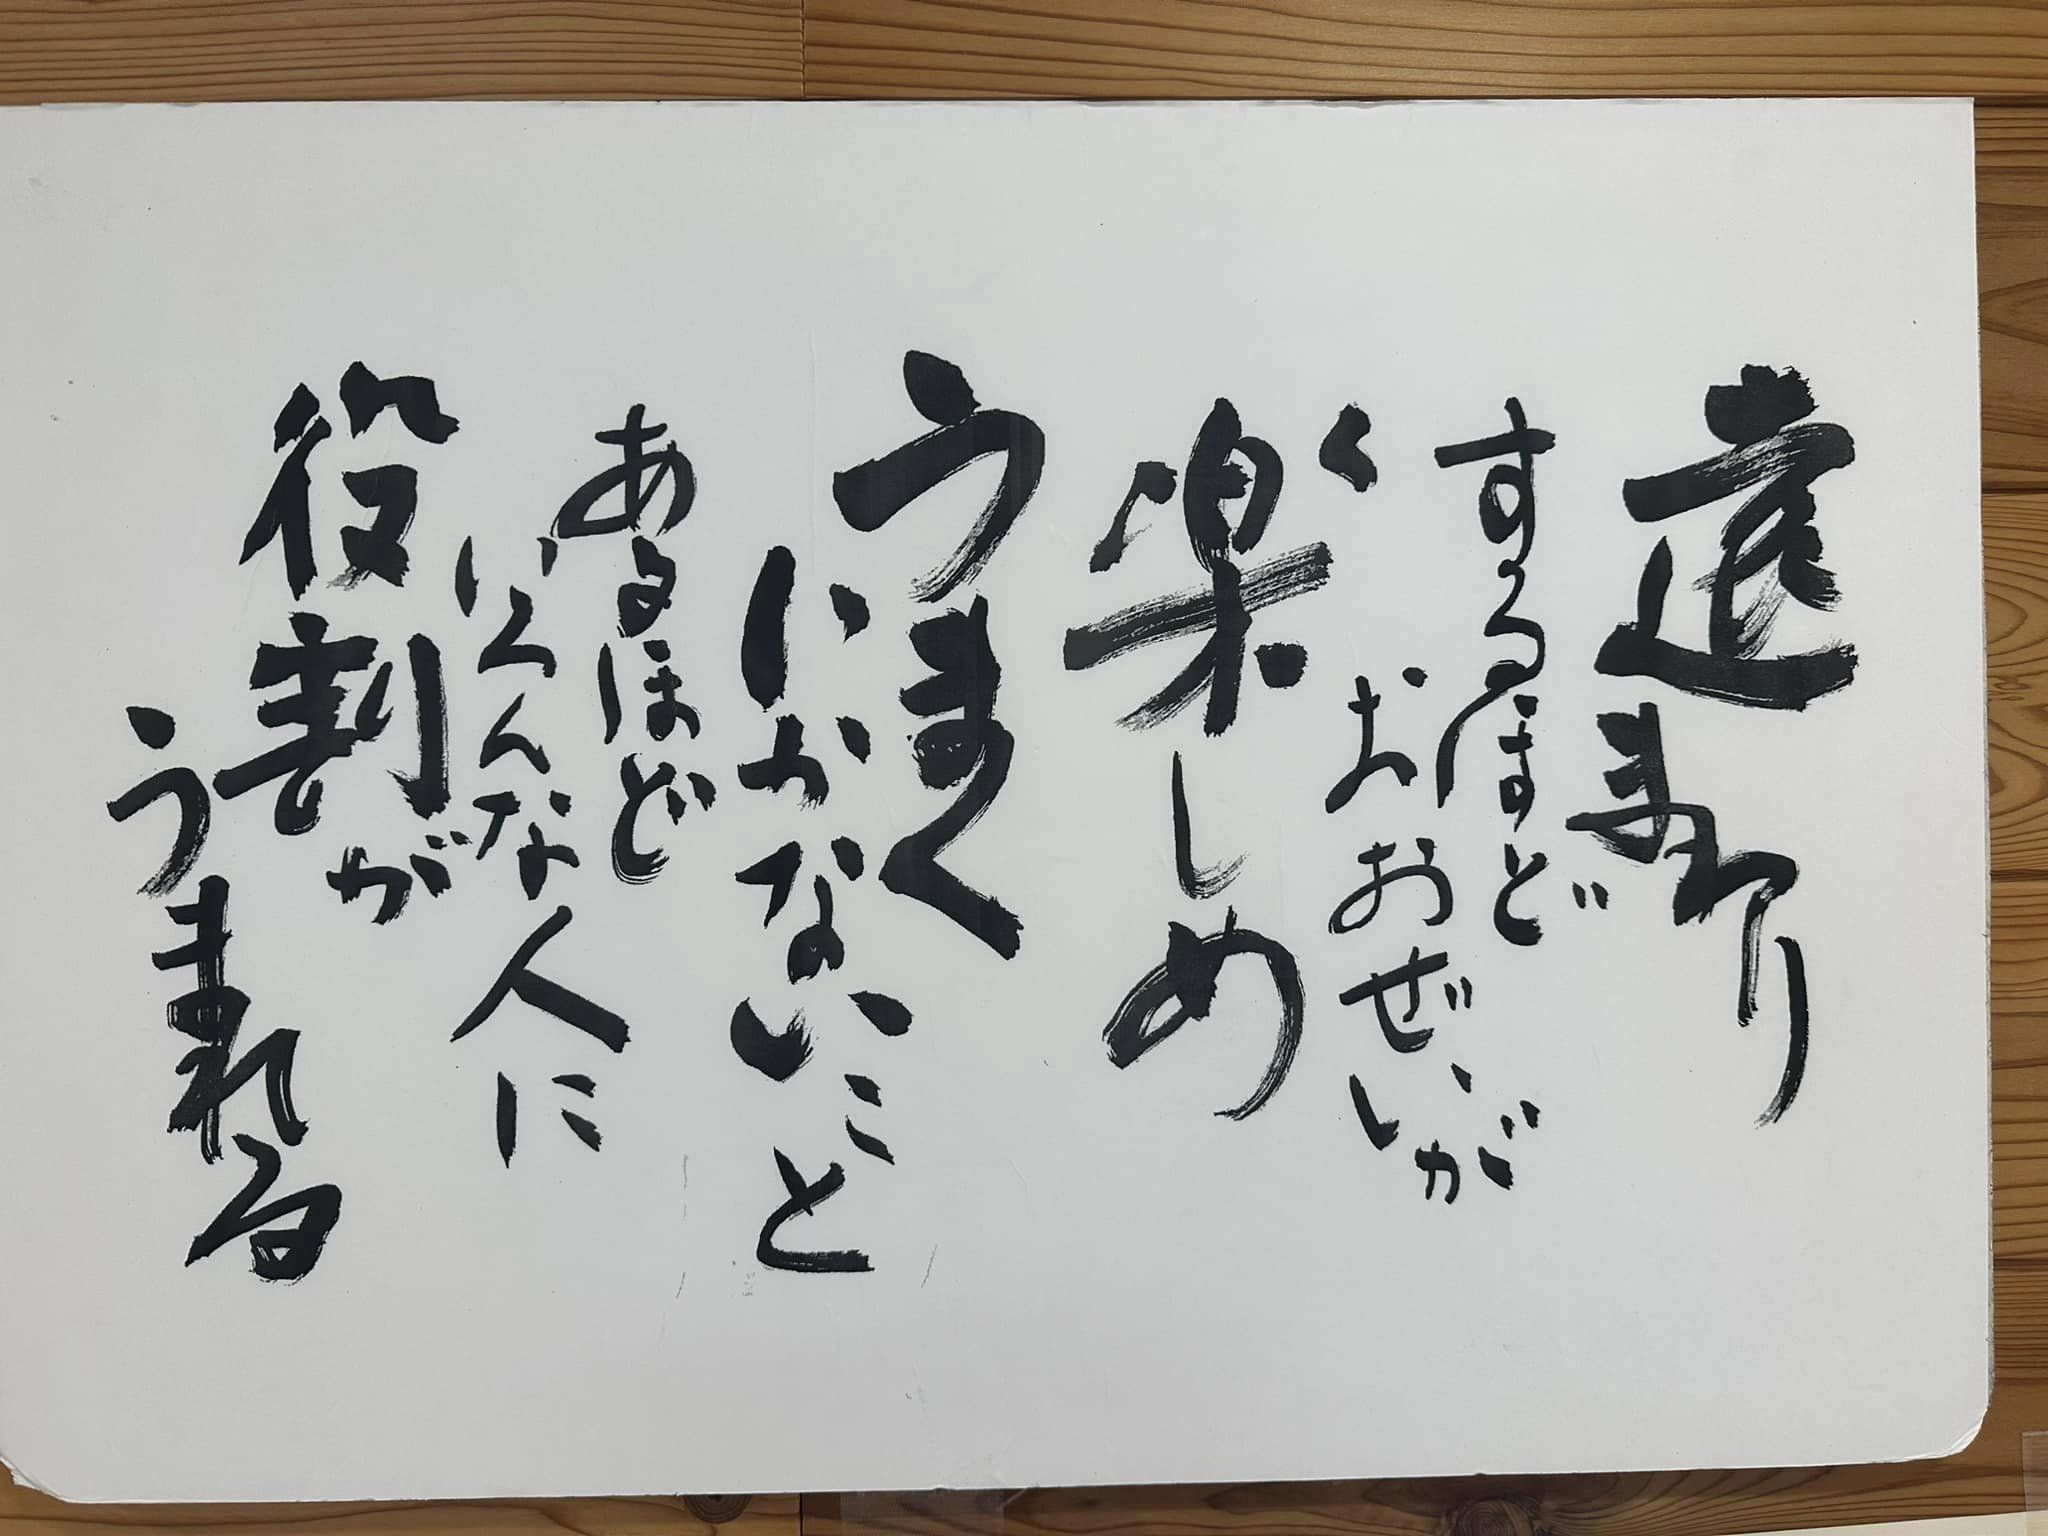 遠まわり
するほど
おおぜいが
く
楽しめ
うまく
いかないこと
あるほど
いろんな人に
役割が
うまれる